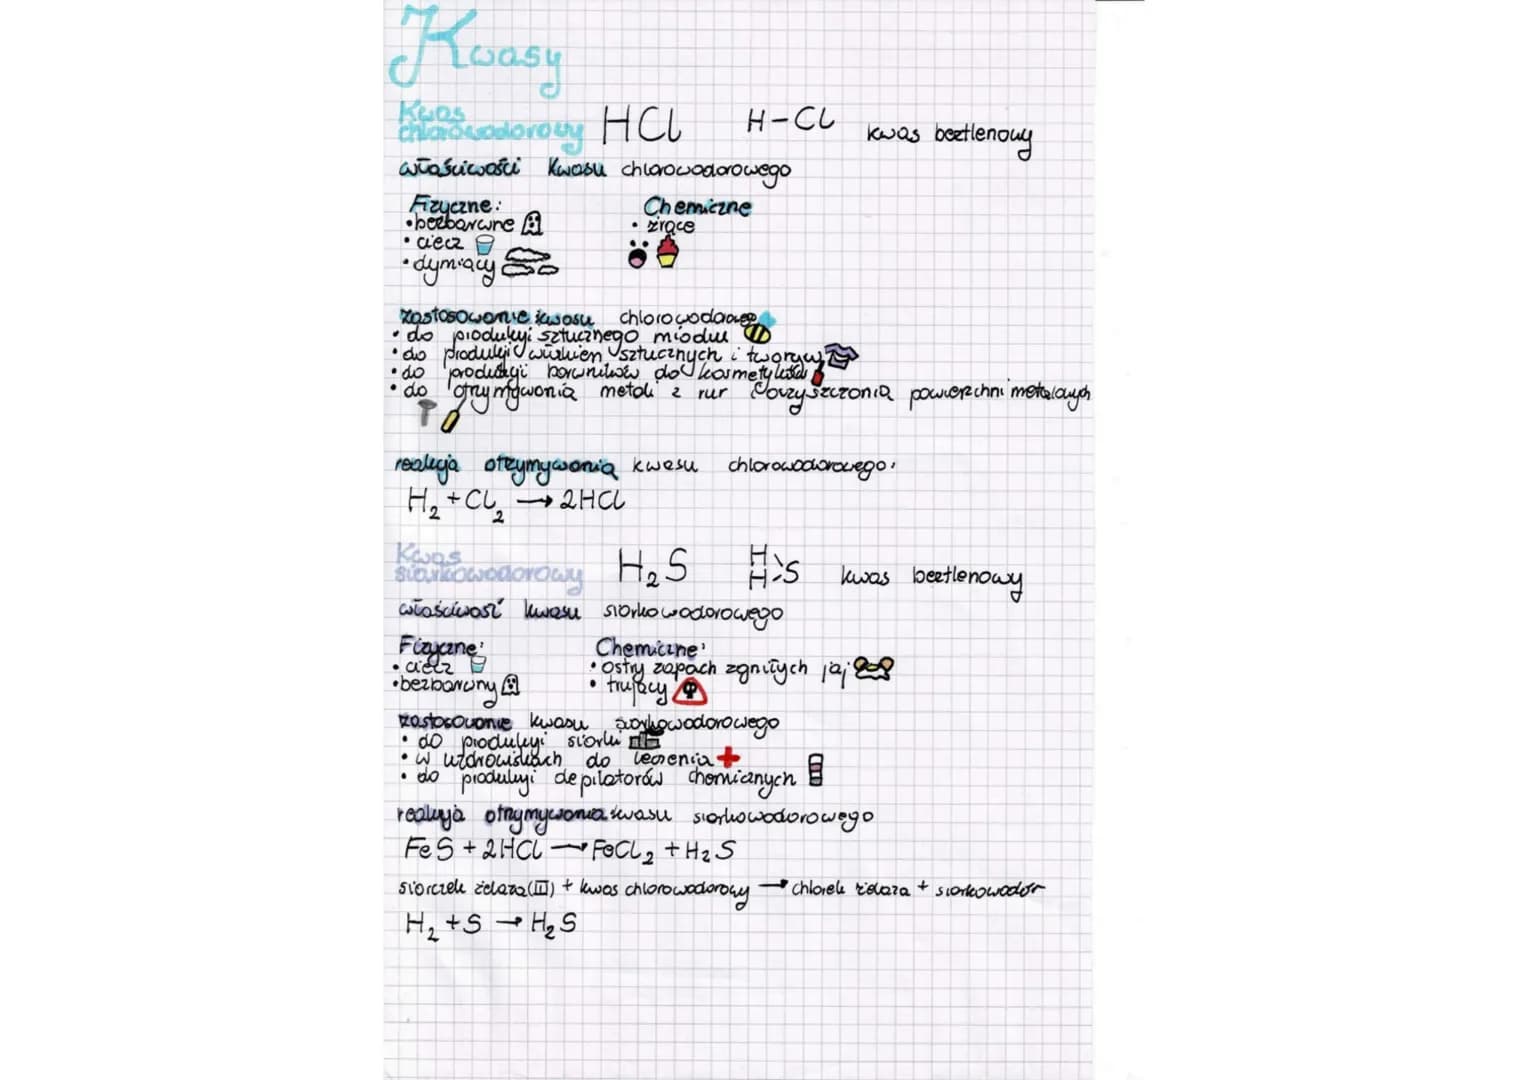 Kwasy
Kwas
chlorowodorowy HCl H-Cl kwas beztlenowy
właściwości kwasu chlorowodorowego
Fizyczne: Chemiczne
•bezbarwne • żrące
• ciecz
• dymiący
zastosowanie kwasu chlorowodorowego
• do produkcji sztucznego miodu
• do produkcji włókien sztucznych i tworzyw
• do produkcji barwników do kosmetyków
• do otrzymywania metali z rur oczyszczania powierzchni metalowych
reakcja otrzymywania kwasu chlorowodorowego:
H₂ + Cl₂ → 2HCl
Kwas
siarkowodorowy H₂S H H S kwas beztlenowy
właściwość kwasu siarkowodorowego
Fizyczne: Chemiczne:
• ciecz • ostry zapach zgniłych jaj
•bezbarwny • trujący
zastosowanie kwasu siarkowodorowego
• do produkcji siarki
• w uzdrowiskach do leczenia
• do produkcji depilatorów chemicznych
reakcja otrzymywania kwasu siarkowodorowego
FeS + 2HCl → FeCl₂ + H₂S
siarczek żelaza(II) + kwas chlorowodorowy → chlorek żelaza + siarkowodór
H₂ + S → H₂S